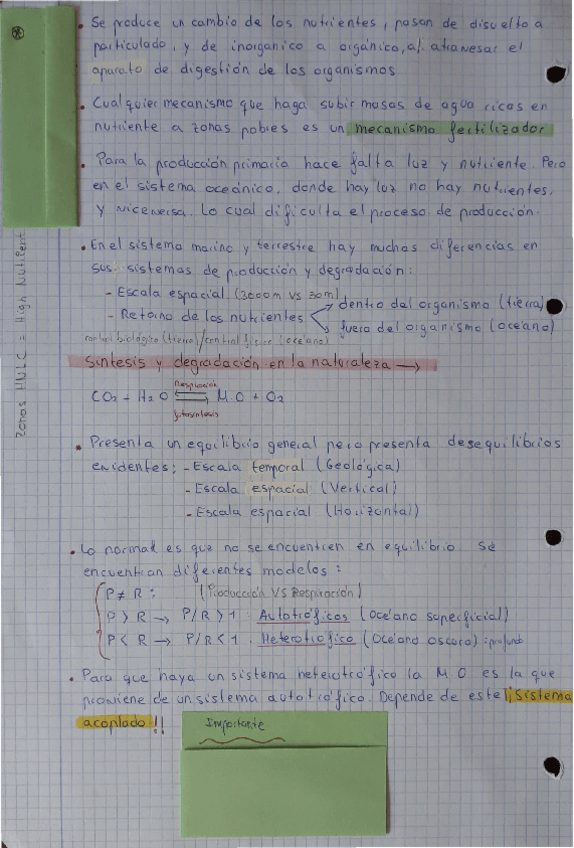 • Se produce un cambio de los nutrientes, pasan de disuelto a
particulado, y de inorganico a orgánico, al atravesar el
aparato de digestión de los organismos.
• Cualquier mecanismo que haga subir masas de agua ricas en
nutriente a zonas pobres es un mecanismo fertilizador
• Para la producción primaria hace falta luz y nutriente. Pero
en el sistema oceánico, donde hay luz no hay nutrientes,
y viceversa. Lo cual dificulta el proceso de producción.
• En el sistema marino y terrestre hay muchas diferencias en
sus sistemas de producción y degradación:
- Escala espacial (3000m vs 30m)
- Retorno de los nutrientes dentro del organismo (tierra)
fuera del organismo (océano)
control biológico (tierra)/control físico (océano)
Síntesis y degradación en la naturaleza →
Respiración
CO2 + H2O ⇌ M.O + O2
fotosíntesis
• Presenta un equilibrio general pero presenta desequilibrios
evidentes: - Escala temporal (Geológica)
- Escala espacial (Vertical)
- Escala espacial (Horizontal)
• Lo normal es que no se encuentren en equilibrio se
encuentran diferentes modelos:
P ≠ R: (Producción VS Respiración)
P > R → P/R > 1 : Autotróficos (Océano superficial)
P < R → P/R < 1 : Heterotrófico (Océano oscuro) : profundo
• Para que haya un sistema heterotrófico la M.O es la que
proviene de un sistema autotrófico. Depende de este ¡¡sistema
acoplado!!
Importante
Zonas HNLC = High Nutrient